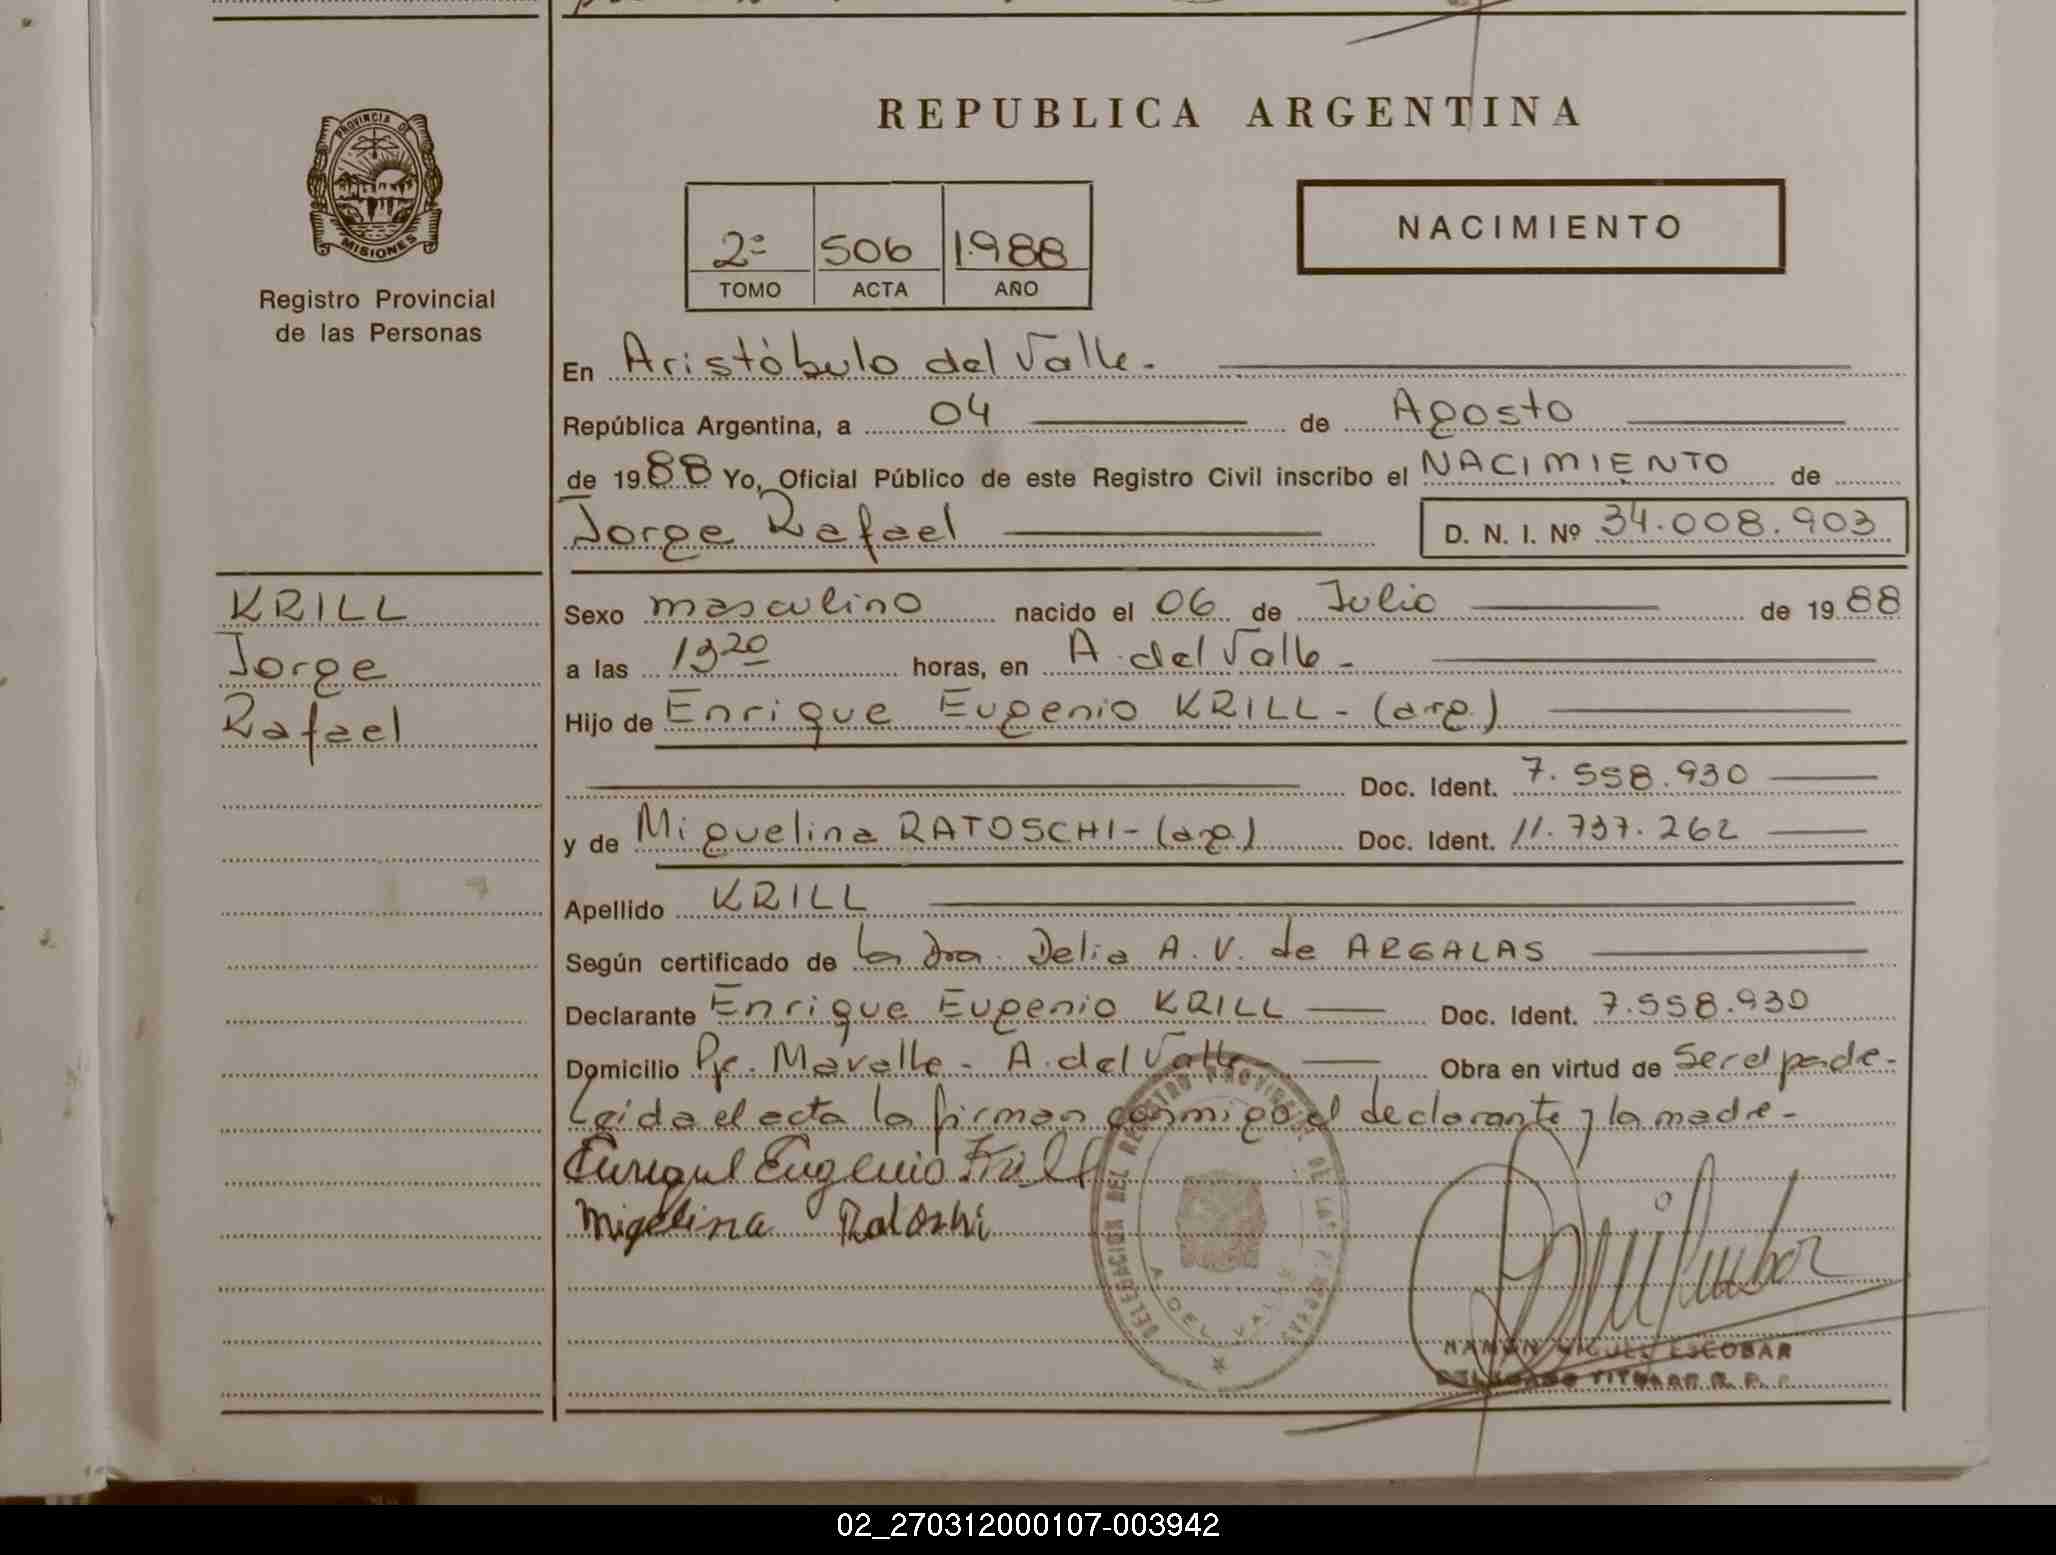 PROVINCIA DE
MISIONES
Registro Provincial
de las Personas
REPUBLICA ARGENTINA
2º 506 1988
TOMO ACTA AÑO
NACIMIENTO
En Aristóbulo del Valle.
República Argentina, a 04 de Agosto
de 1988 Yo, Oficial Público de este Registro Civil inscribo el NACIMIENTO de
Jorge Rafael D. N. I. Nº 34.008.903
KRILL
Jorge
Rafael
Sexo masculino nacido el 06 de Julio de 1988
a las 13 20 horas, en A. del Valle -
Hijo de Enrique Eugenio KRILL - (arg.)
Doc. Ident. 7.558.930
y de Miguelina RATOSCHI - (arg.) Doc. Ident. 11.737.262
Apellido KRILL
Según certificado de la Dra. Delia A. V. de ARGALAS
Declarante Enrique Eugenio KRILL Doc. Ident. 7.558.930
Domicilio Pje. Mavalle - A. del Valle Obra en virtud de Ser el padre -
Leida el acta la firman conmigo el declarante y la madre -
Enrique Eugenio Krill
Migelina
DELEGACION DEL REGISTRO PROVINCIAL DE LAS PERSONAS
A. DEL VALLE
RAMON MIGUEL ESCOBAR
DELEGADO TITULAR R. P.
02_270312000107-003942